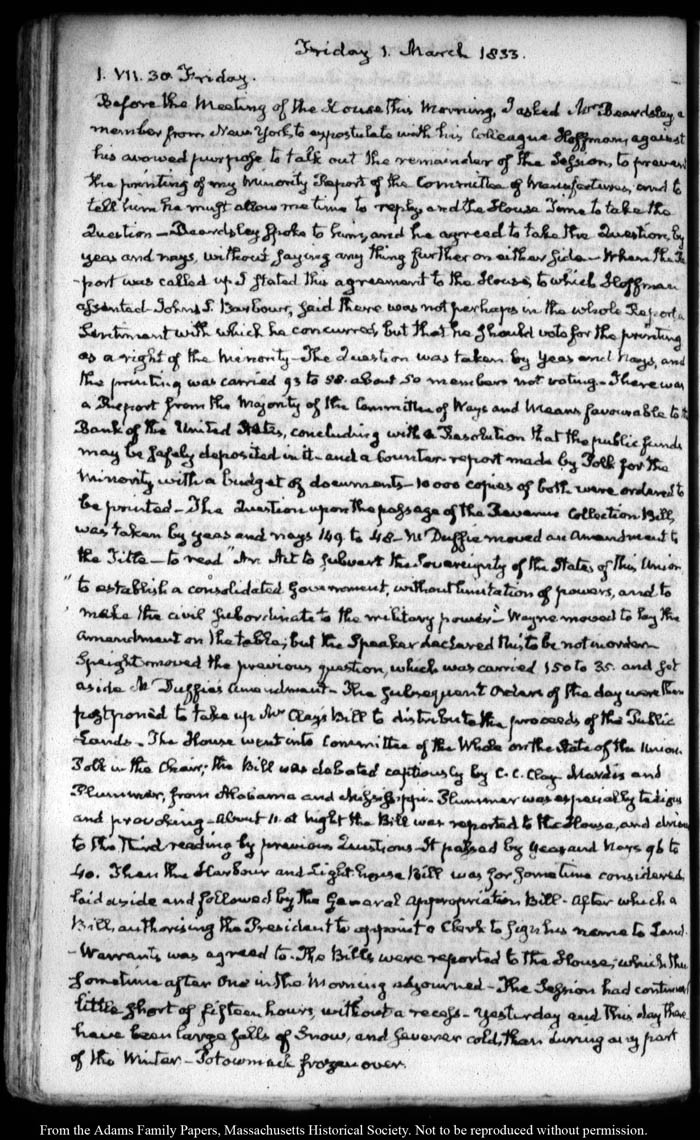 Friday 1. March 1833.
1. VII. 30 Friday.
Before the Meeting of the House this Morning, I asked Mr Beardsley a
member from New York, to expostulate with his Colleague Hoffman, against
his avowed purpose to talk out the remainder of the Session, to prevent
the printing of my Minority Report of the Committee of Manufactures, and to
tell him he must allow me time to reply, and the House Time to take the
Question — Beardsley spoke to him, and he agreed to take the Question, by
yeas and nays, without saying any thing further on either side — When the Re
-port was called up I stated this agreement to the House, to which Hoffman
assented. John S. Barbour, said there was not perhaps in the whole Report a
Sentiment with which he concurred, but that he should vote for the printing
as a right of the Minority — The Question was taken by Yeas and Nays, and
the printing was carried 93 to 58. about 50 members not voting — There was
a Report from the Majority of the Committee of Ways and Means favourable to the
Bank of the United States, concluding with a Resolution that the public funds
may be safely deposited in it — and a Counter-report made by Polk for the
Minority with a budget of documents — 10 000 copies of both were ordered to
be printed — The Question upon the passage of the Revenue Collection Bill,
was taken by yeas and nays 149 to 48 — McDuffie moved an Amendment to
the Title — to read "An Act to subvert the Sovereignty of the States of this Union
" to establish a consolidated Government, without limitation of powers, and to
" make the civil subordinate to the military power" — Wayne moved to lay the
Amendment on the table; but the Speaker declared this to be not in order —
Speight moved the previous question, which was carried 150 to 35. and set
aside McDuffie's Amendment — The subsequent Orders of the day were then
postponed to take up Mr Clay's Bill to distribute the proceeds of the Public
Lands — The House went into Committee of the Whole on the State of the Union
Polk in the Chair; the Bill was debated captiously by C. C. Clay — Mardis and
Plummer, from Alabama and Mississippi — Plummer was especially tedious
and provoking — about 11. at night the Bill was reported to the House, and driven
to the third reading by previous Questions — It passed by yeas and Nays 96 to
40. Then the Harbour and Light-house Bill was for some time considered,
laid aside and followed by the General Appropriation Bill — after which a
Bill, authorising the President to appoint a Clerk to sign his name to Land
- Warrants was agreed to. The Bills were reported to the House, which then
sometime after One in the Morning adjourned — The Session had continued
little short of fifteen hours, without a recess — Yesterday and This day there
have been large falls of Snow, and severer cold, than during any part
of the Winter — Potowmack frozen over.
From the Adams Family Papers, Massachusetts Historical Society. Not to be reproduced without permission.